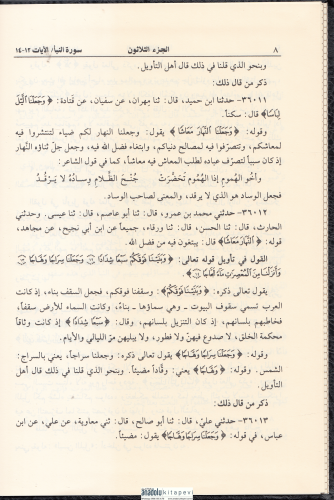 ٨ الجزء الثلاثون سورة النبأ/ الآيات ١٢-١٤
وبنحو الذي قلنا في ذلك قال أهل التأويل.
ذكر من قال ذلك:
٣٦٠١١- حدثنا ابن حميد، قال: ثنا مهران، عن سفيان، عن قتادة: ﴿وَجَعَلْنَا اللَّيْلَ
لِبَاسًا﴾ قال: سكناً.
وقوله: ﴿وَجَعَلْنَا النَّهَارَ مَعَاشًا﴾ يقول: وجعلنا النهار لكم ضياء لتنتشروا فيه
لمعاشكم، وتتصرّفوا فيه لمصالح دنياكم، وابتغاء فضل الله فيه، وجعل جلّ ثناؤه النَّهار
إذ كان سبباً لتصرّف عباده لطلب المعاش فيه معاشاً، كما في قول الشاعر:
وأخُو الهُمومِ إذا الهُمُومُ تَحَضَّرَتْ جُنْحَ الظَّلامِ وِسادُهُ لا يَرْقُدُ
فجعل الوساد هو الذي لا يرقد، والمعنى لصاحب الوساد.
٣٦٠١٢- حدثني محمد بن عمرو، قال: ثنا أبو عاصم، قال: ثنا عيسى. وحدثني
الحارث، قال: ثنا الحسن، قال: ثنا ورقاء، جميعاً عن ابن أبي نجيح، عن مجاهد،
قوله: ﴿النَّهَارَ مَعَاشًا﴾ قال: يبتغون فيه من فضل الله.
القول في تأويل قوله تعالى: ﴿وَبَنَيْنَا فَوْقَكُمْ سَبْعًا شِدَادًا ﴿١٢﴾ وَجَعَلْنَا سِرَاجًا وَهَّاجًا ﴿١٣﴾
وَأَنزَلْنَا مِنَ الْمُعْصِرَاتِ مَاءً ثَجَّاجًا ﴿١٤﴾﴾.
يقول تعالى ذكره: ﴿وَبَنَيْنَا فَوْقَكُمْ﴾: وسقفنا فوقكم، فجعل السقف بناء، إذ كانت
العرب تسمي سقوف البيوت - وهي سماؤها - بناءً، وكانت السماء للأرض سقفاً،
فخاطبهم بلسانهم، إذ كان التنزيل بلسانهم، وقال: ﴿سَبْعًا شِدَادًا﴾ إذ كانت وثاقاً
محكمة الخلق، لا صدوع فيهنّ ولا فطور، ولا يبليهنّ مرّ الليالي والأيام.
وقوله: ﴿وَجَعَلْنَا سِرَاجًا وَهَّاجًا﴾ يقول تعالى ذكره: وجعلنا سراجاً، يعني بالسراج:
الشمس. وقوله: ﴿وَهَّاجًا﴾ يعني: وقّاداً مضيئاً. وبنحو الذي قلنا في ذلك قال أهل
التأويل.
ذكر من قال ذلك:
٣٦٠١٣- حدثني عليّ، قال: ثنا أبو صالح، قال: ثني معاوية، عن علي، عن ابن
عباس، في قوله: ﴿وَجَعَلْنَا سِرَاجًا وَهَّاجًا﴾ يقول: مضيئاً.
anadolukitapevi